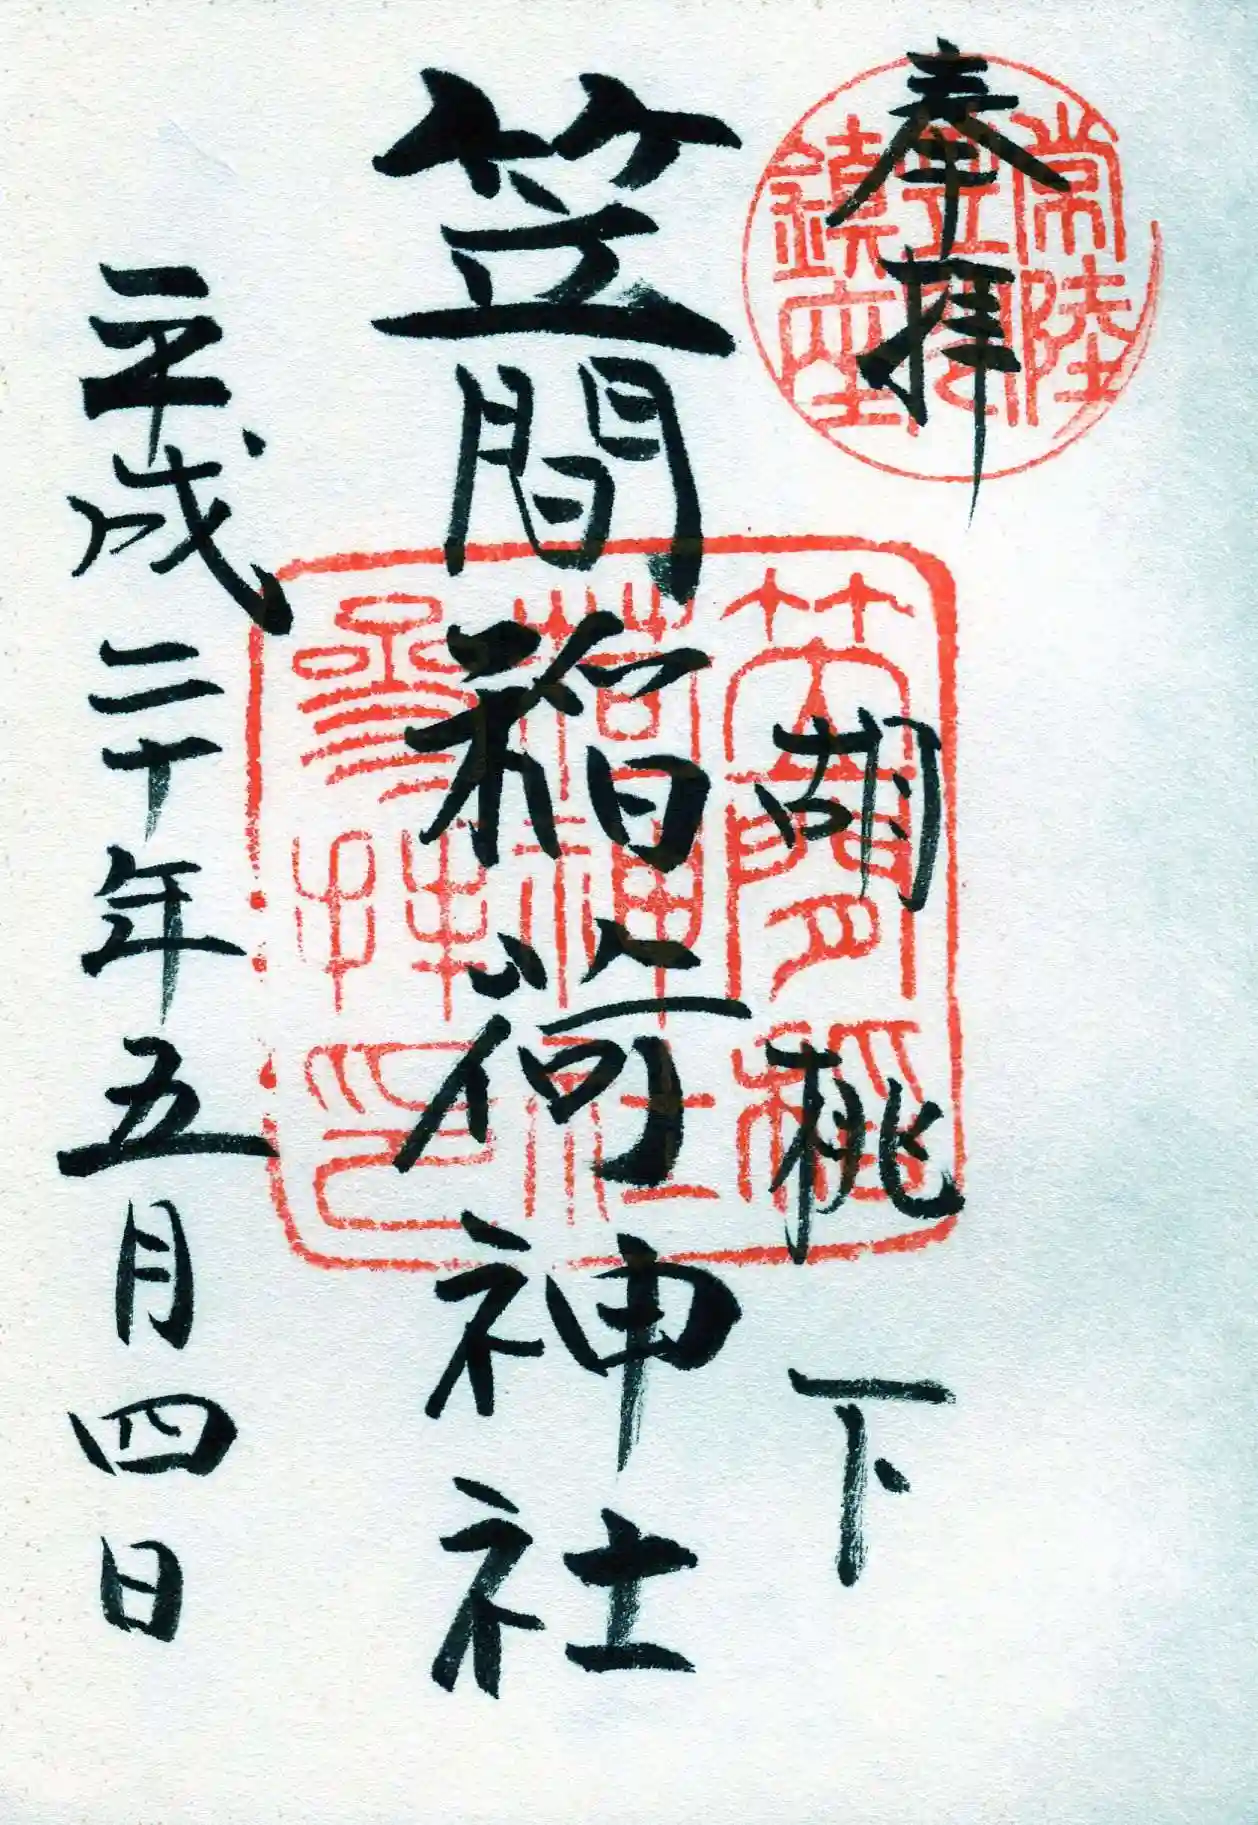 奉拝
常陸
鎮座
胡桃下
笠間稲荷神社
笠間稲
荷神社
参拝印
平成二十年五月四日